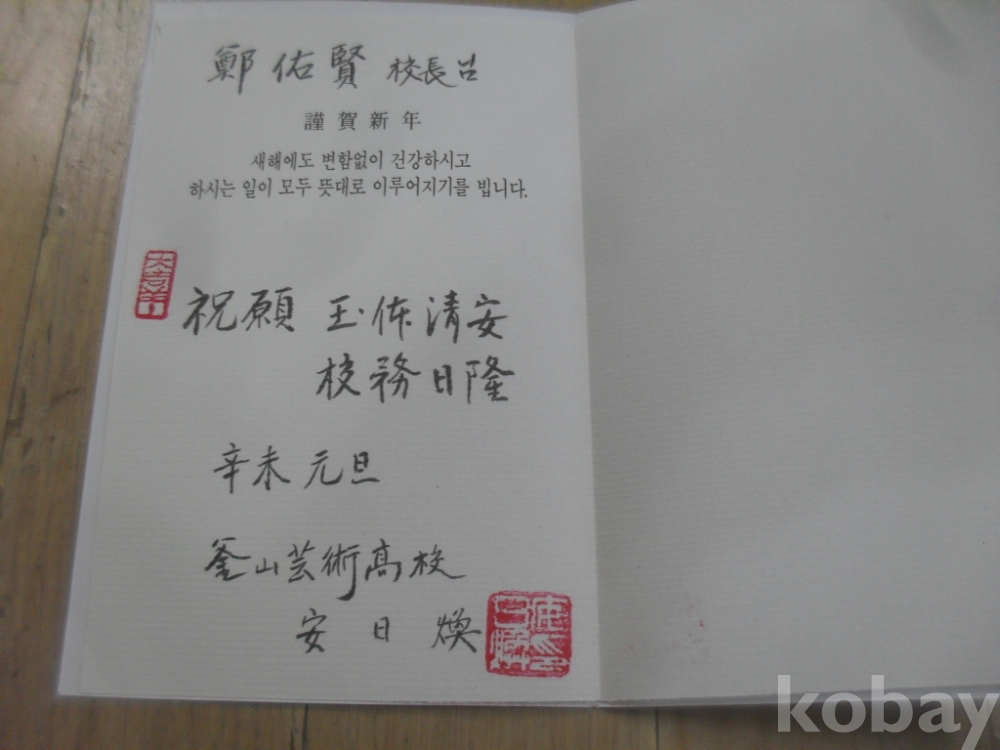 鄭佑賢 校長님
謹賀新年
새해에도 변함없이 건강하시고
하시는 일이 모두 뜻대로 이루어지기를 빕니다.
祝願 玉体清安
校務日隆
辛未 元旦
釜山芸術高校
安日煥
kobay